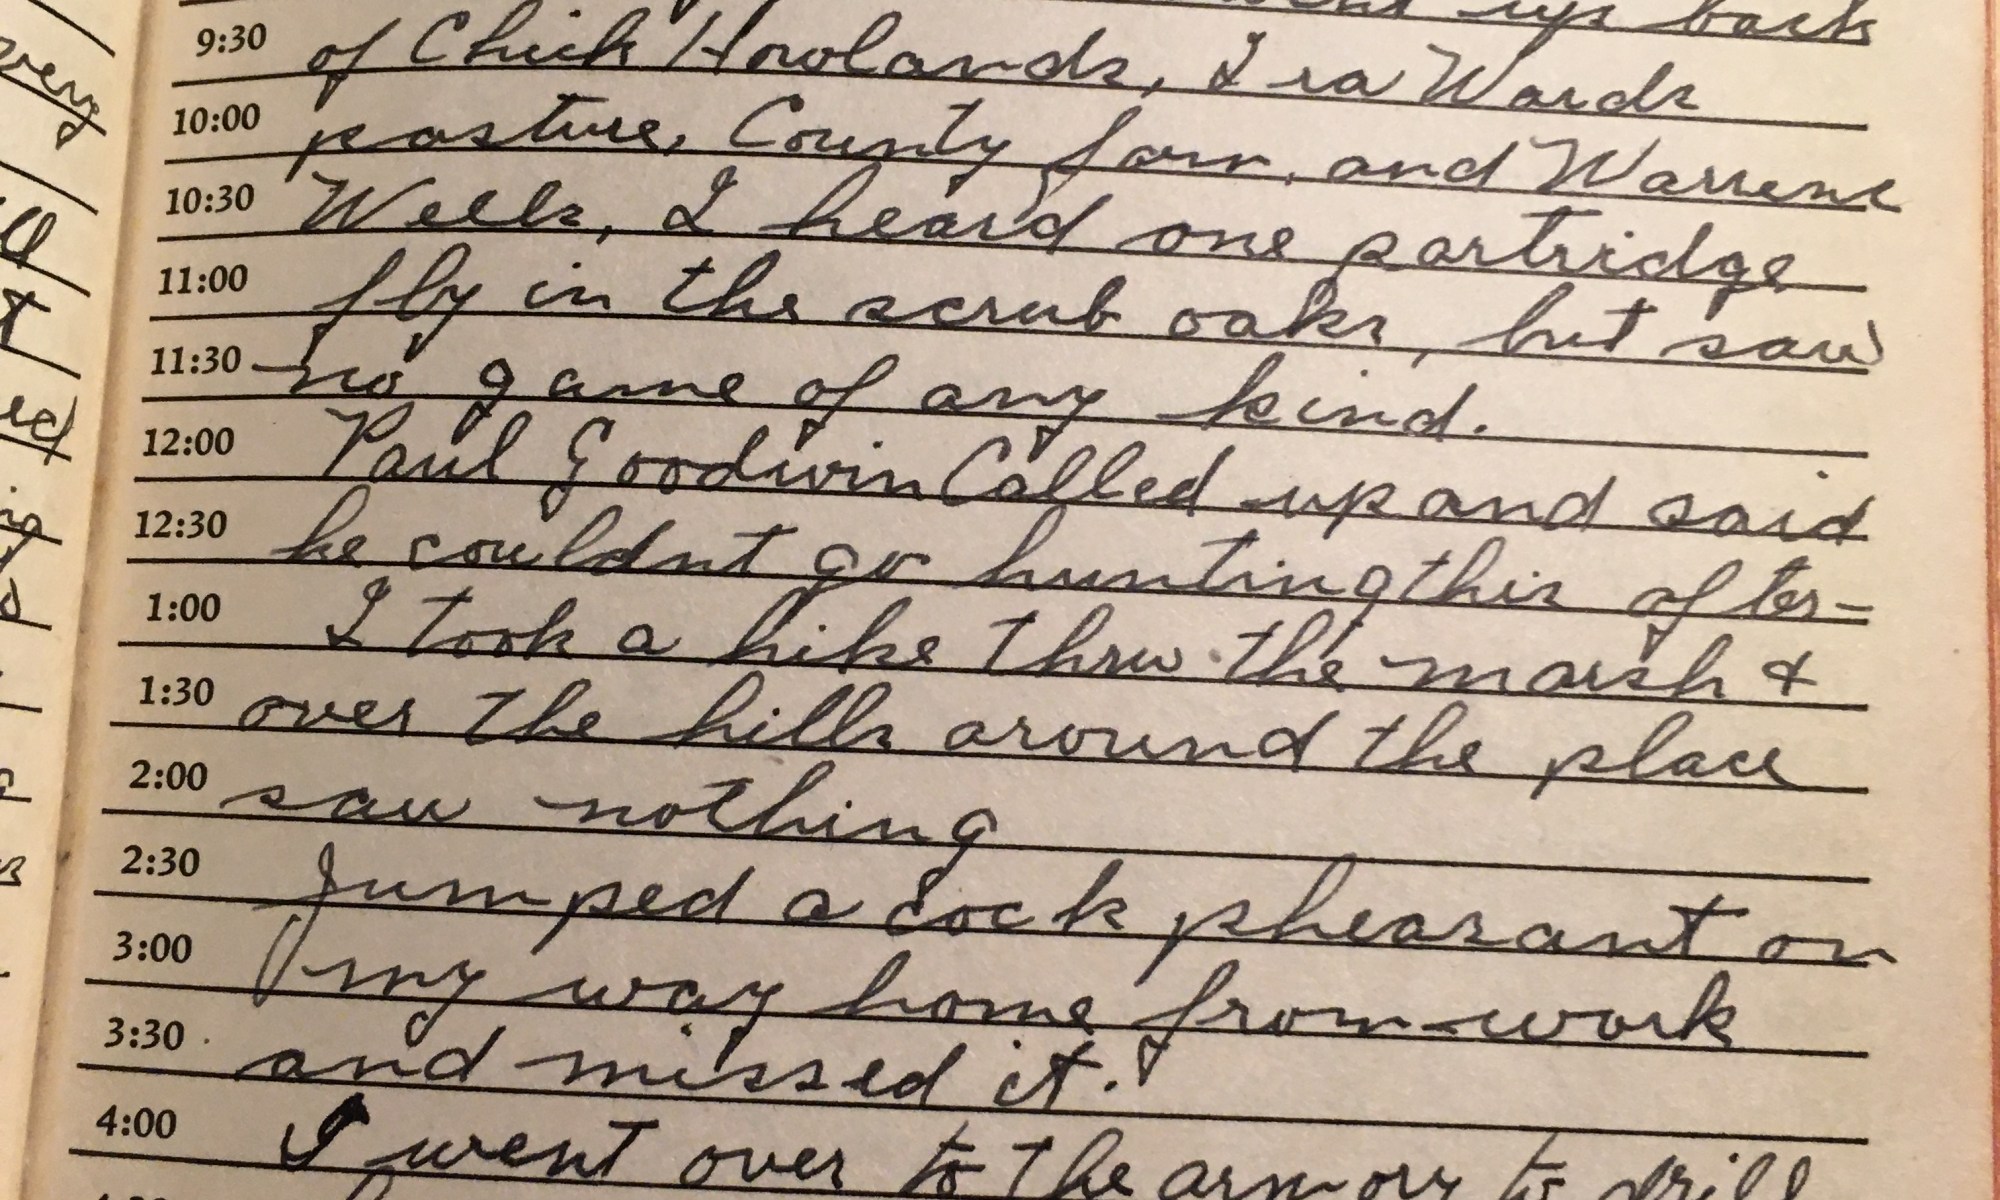 went up back
9:30 of Chick Howlands, Ira Wards
10:00 pasture, County farm, and Warrene
10:30 Wells, I heard one partridge
11:00 fly in the scrub oaks, but saw
11:30 no game of any kind.
12:00 Paul Goodwin Called up and said
12:30 he couldnt go hunting this after=
1:00 I took a hike thru the marsh &
1:30 over the hills around the place
2:00 saw nothing
2:30 Jumped a cock pheasant on
3:00 my way home from work
3:30 and missed it.
4:00 I went over to the armory to drill
very
t
ed